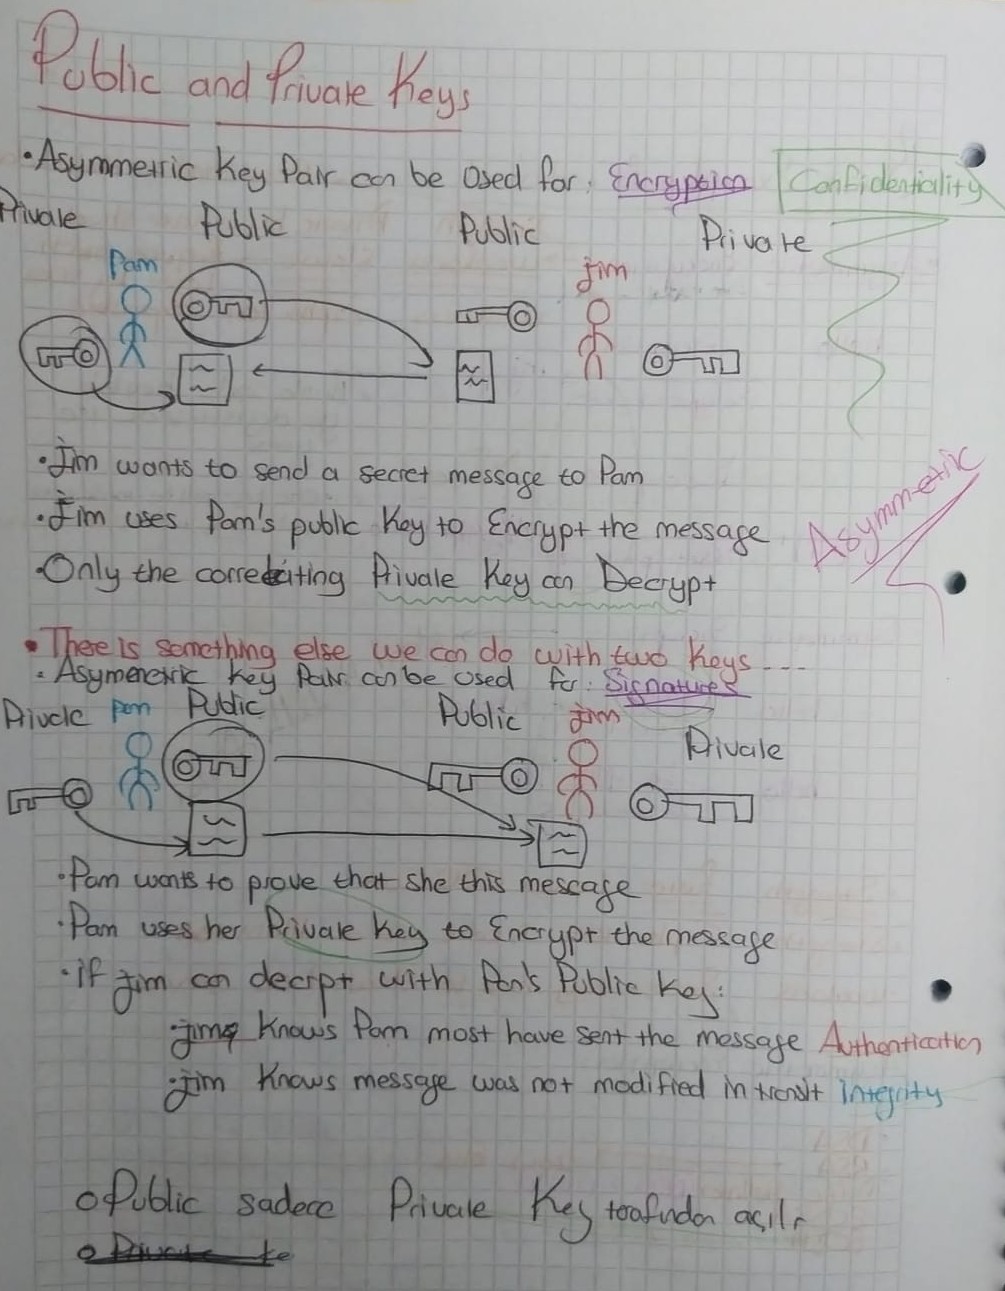 Public and Private Keys
• Asymmetric Key Pair can be Used for: Encryption Confidentiality
Private Public Public Private
Pam Jim
• Jim wants to send a secret message to Pam
• Jim uses Pam's public Key to Encrypt the message
Asymmetric
• Only the Private Key can Decrypt
• There is something else we can do with two Keys ---
• Asymemetric Key Pair can be used for: Signatures
Private Pam Public Public Jim Private
• Pam wants to prove that she this message
• Pam uses her Private Key to Encrypt the message
• if Jim can decrpt with Pam's Public Key:
• Jim Knows Pam most have sent the message Authentication
• Jim Knows message was not modified in transit integrity
o Public sadece Private Key tarafından açılır